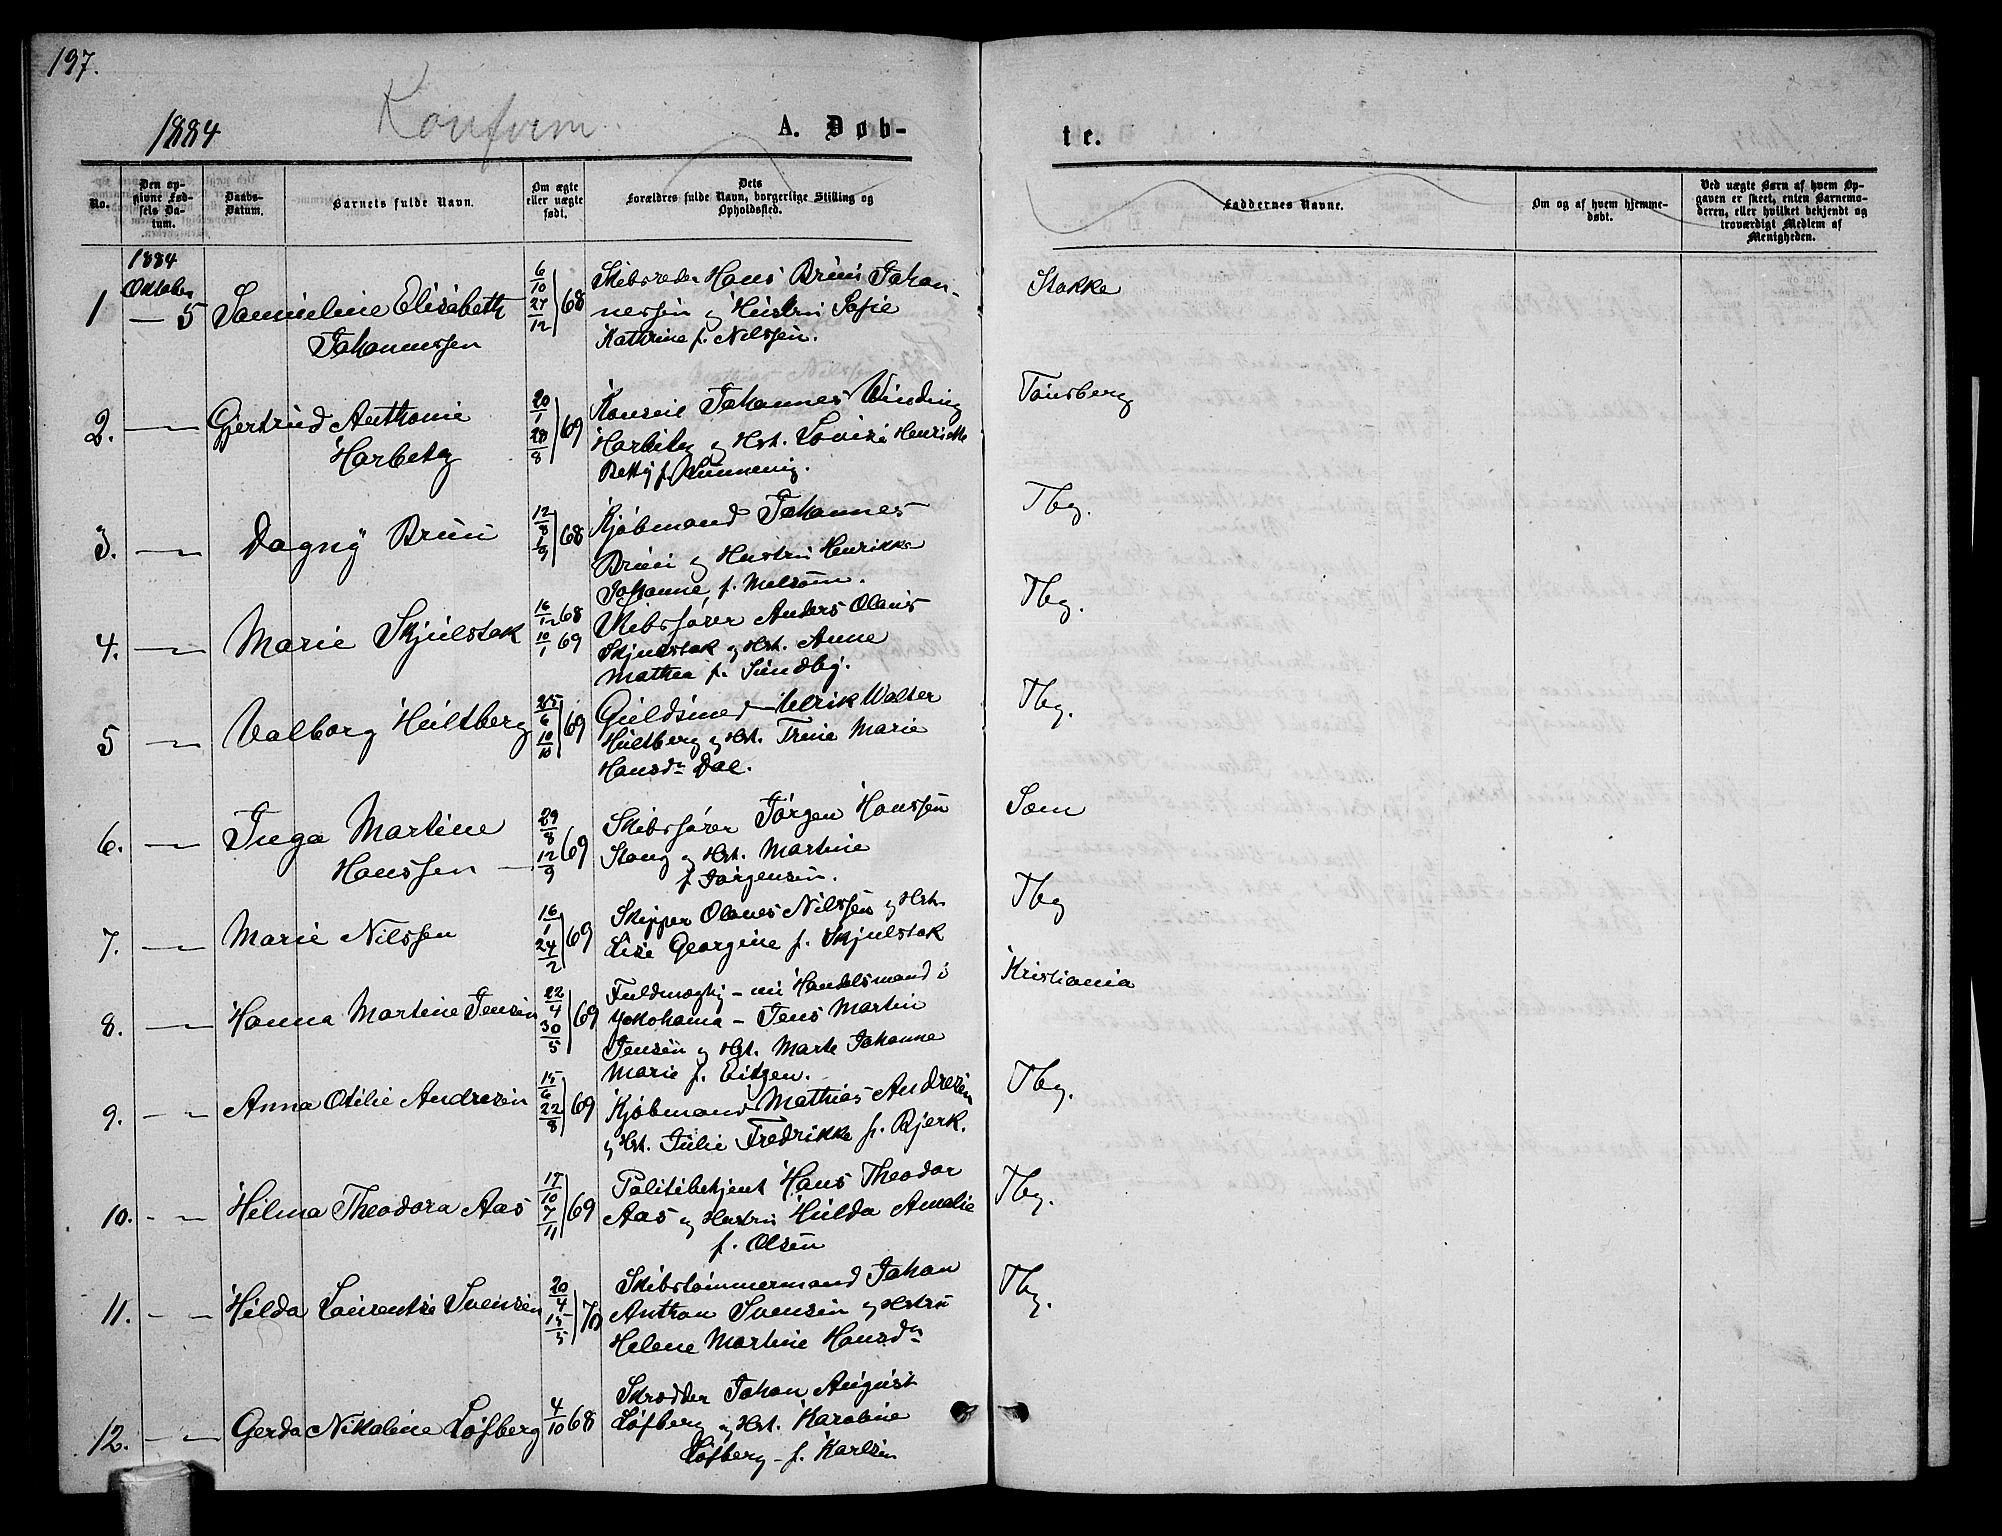 197.
1884
Konfirm.
A. Døb-
te.
No.
Den op-
givne Fød-
sels Da-
tum.
Daabs-
Datum.
Barnets fulde Navn.
Om ægte
eller uægte
født.
Dets
Forældres fulde Navn, borgerlige Stilling og
Opholdssted.
Faddernes Navne.
Om og af hvem hjemme-
døbt.
Ved uægte Børn af hvem Op-
gaven er skeet, enten Barnemo-
deren, eller hvilket bekjendt og
troværdigt Medlem af
Menigheden.
1884
Oktober
1 — 5 Samueline Elisabeth
Johannessen
6/10 27/12 68
Skibsreder Hans Bruun Johan-
nessen og Hustru Sofie
Kathrine f. Nilssen.
Stokke
2. —"— Gjertrud Anthonie
Harbitz
20/1 28/8 69
Konsul Johannes Winding
Harbitz og Hst. Lovise Henriette
Betty f.
Tønsberg
3. —"— Dagny Bruu
12/8 1/9 68
Kjøbmand Johannes
Bruu og Hustru Henrikke
Johanne, f. Melsom.
Tbg.
4. —"— Marie Skjulstak
16/12 68
10/1 69
Skibsfører Anders Olaus
Skjulstak og Hst. Anne
Mathea f. Sundby.
Tbg.
5 —"— Valborg Hultberg
25/6 10/10 69
Guldsmed Ulrik Walter
Hultberg og Hst. Trine Marie
Hansdr Dal.
Tbg.
6. —"— Inga Martine
Hanssen —
29/8 12/9 69
Skibsfører Jørgen Hanssen
Stang og Hst. Martine
f. Jørgensen.
Sæm
7. —"— Marie Nilssen
16/1 24/2 69
Skipper Olaves Nilssen og Hst.
Lise Georgine f. Skjulstak
Tbg
8. —"— Hanna Martine Jensen
22/4 30/5 69
Fuldmægtig – nu Handelsmand i
Yokohama – Jens Martin
Jensen og Hst. Marte Johanne
Marie f. Eitzen.
Kristiania
9. —"— Anna Otilie Andresen
15/6 22/8 69
Kjøbmand Mathias Andresen
og Hst. Julie Fredrikke f. Bjerk.
Tbg.
10. —"— Hilma Theodora Aas
17/10 7/11 69
Politibetjent Hans Theodor
Aas og Hustru Hulda Amalie
f. Olsen
Tbg.
11. —"— Hilda Laurentse Svensen
20/4 15/5 70
Skibstømmermand Johan
Anthon Svensen og Hstru
Helene Martine Hansdr
Tbg.
12. —"— Gerda Nikoline Løfberg
4/10 68
Skrædder Johan August
Løfberg og Hst. Karoline
Løfberg – f. Karlsen